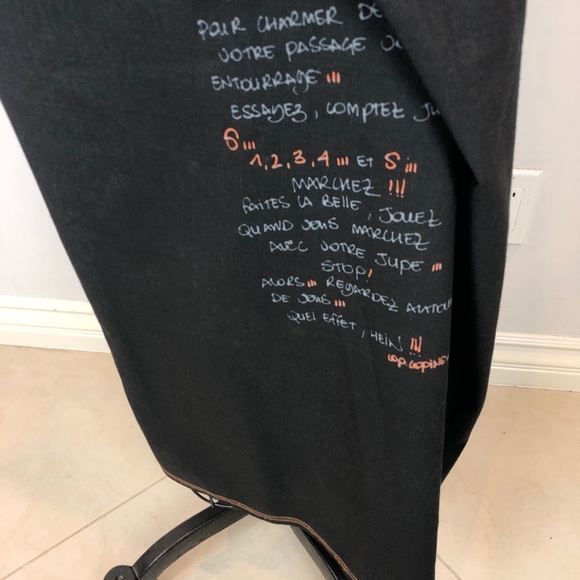 POUR CHARMER DE
VOTRE PASSAGE OU
ENTOURRAGE ııı
ESSAYEZ, COMPTEZ JU
5 ııı
1,2,3,4 ııı ET 5 ııı
MARCHEZ !!!
FAITES LA BELLE, JOUEZ
QUAND VOUS MARCHEZ
AVEC VOTRE JUPE ııı
STOP!
ALORS ııı REGARDEZ AUTOU
DE VOUS ııı
QUEL EFFET, HEIN !!!